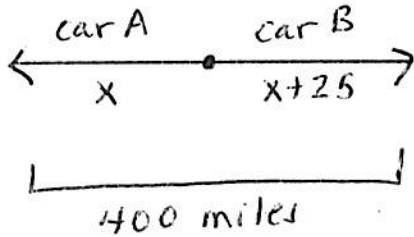 car A car B
x x+25
400 miles